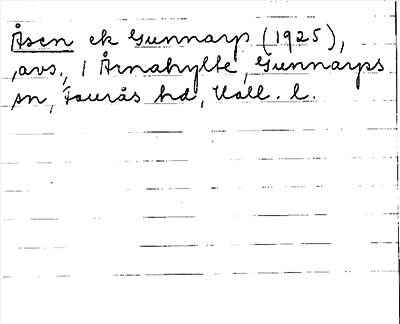 Åsen ek Gunnarp (1925),
avs., 1 Årnahylte, Gunnarps
sn, Faurås hd, Hall. l.